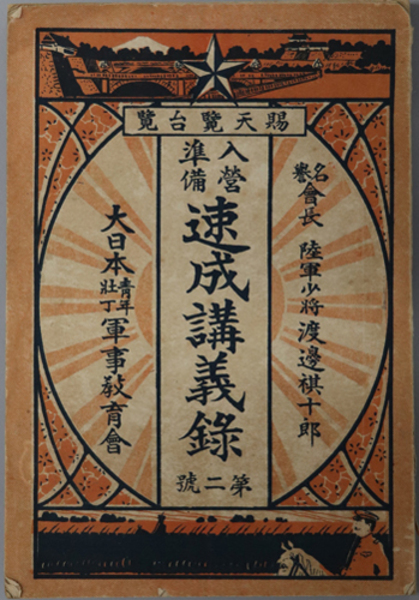 賜天覽台覽
名譽會長 陸軍少將渡邊祺十郎
入營準備
速成講義錄
第二號
大日本青年壯丁軍事教育會